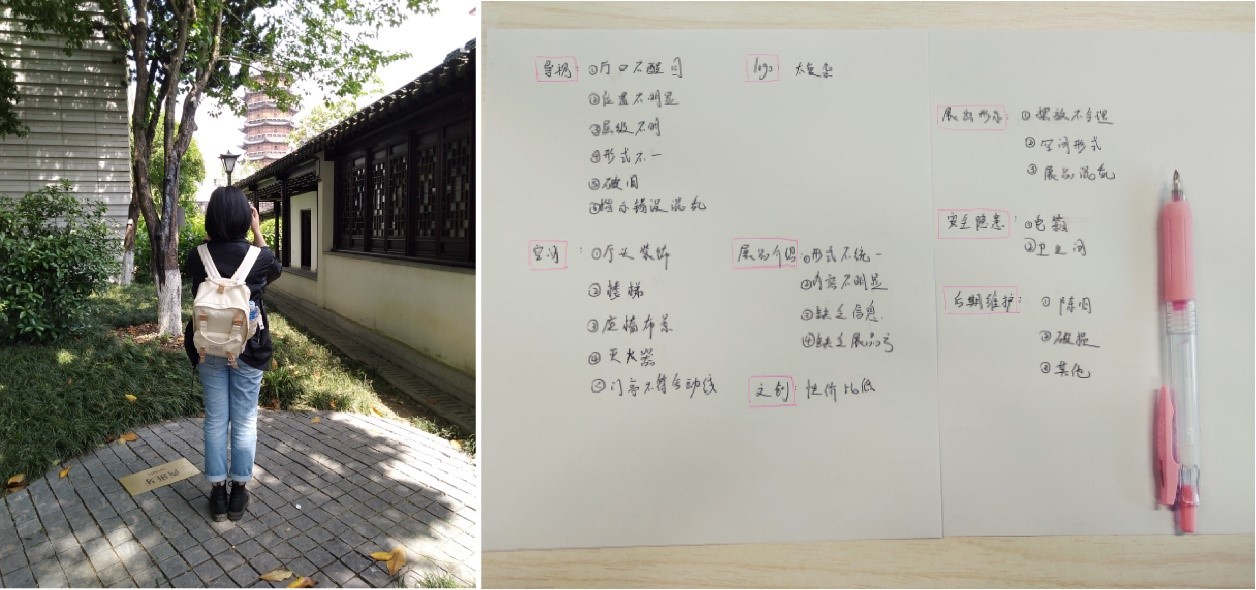 导视：①厅口不醒目
②位置不明显
③层级不明
④形式不一
⑤破旧
⑥指示错误混乱
空间：①厅头装饰
②楼梯
③应墙布景
④灭火器
⑤门亭不符合动线
logo 太复杂
展品介绍：①形式不统一
②内容不明显
③缺乏信息
④缺乏展品号
文创：性价比低
展品形式：①摆放不合理
②空间形式
③展品混乱
安全隐患：①电箱
②卫生间
后期维护：①陈旧
②破损
③其他